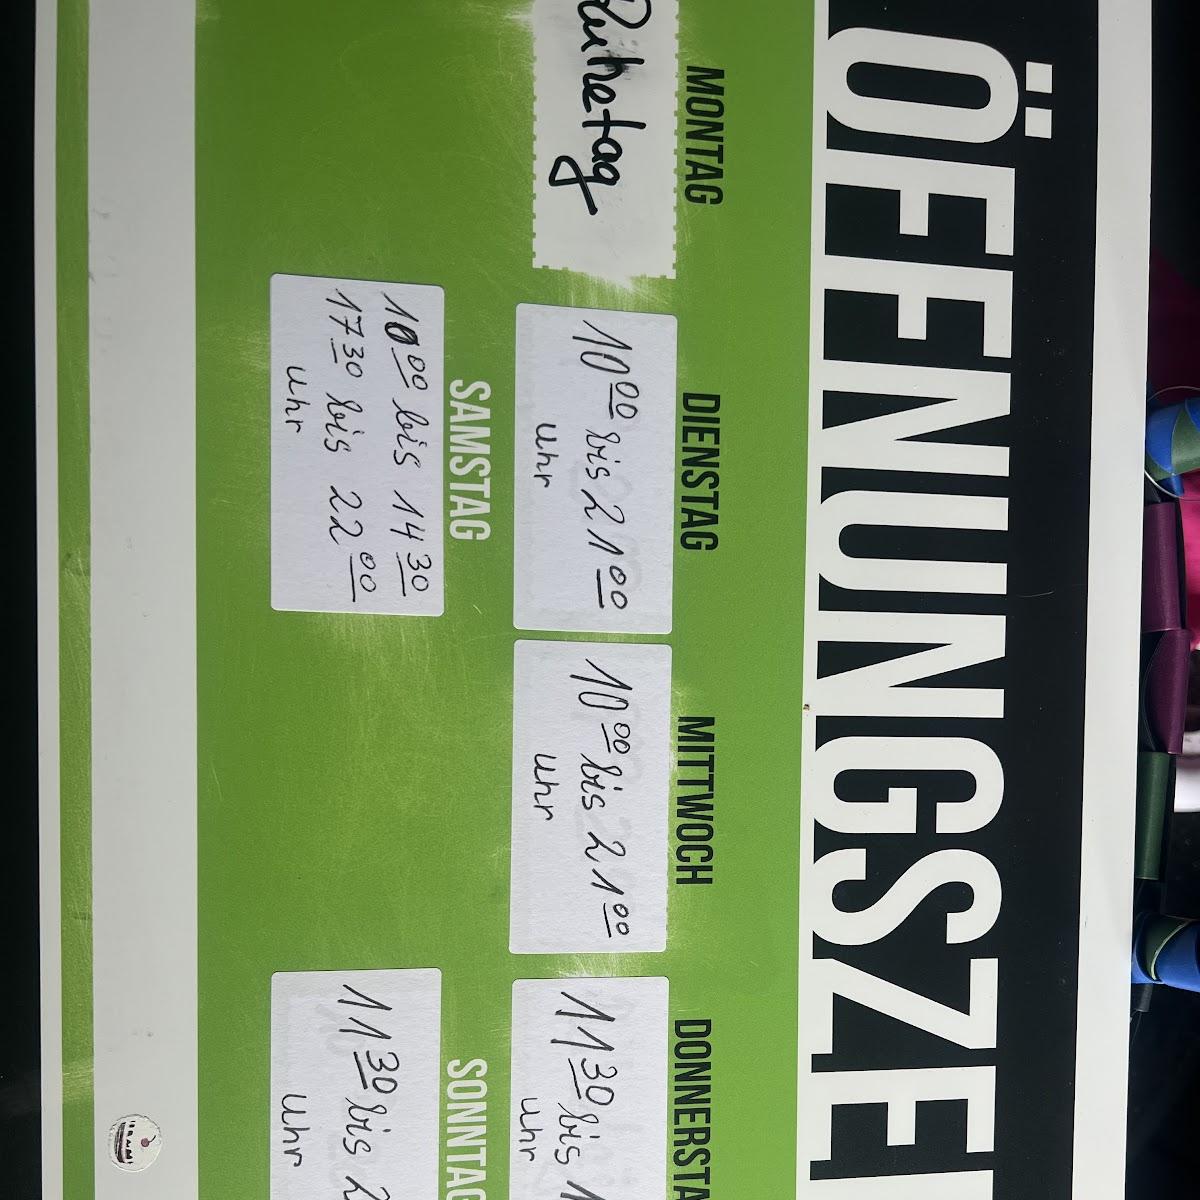 ÖFFNUNGSZEI
MONTAG
Ruhetag
DIENSTAG
10⁰⁰ bis 21⁰⁰
Uhr
MITTWOCH
10⁰⁰ bis 21⁰⁰
Uhr
DONNERSTA
11³⁰ bis 1
Uhr
SAMSTAG
10⁰⁰ bis 14³⁰
17³⁰ bis 22⁰⁰
Uhr
SONNTAG
11³⁰ bis 2
Uhr